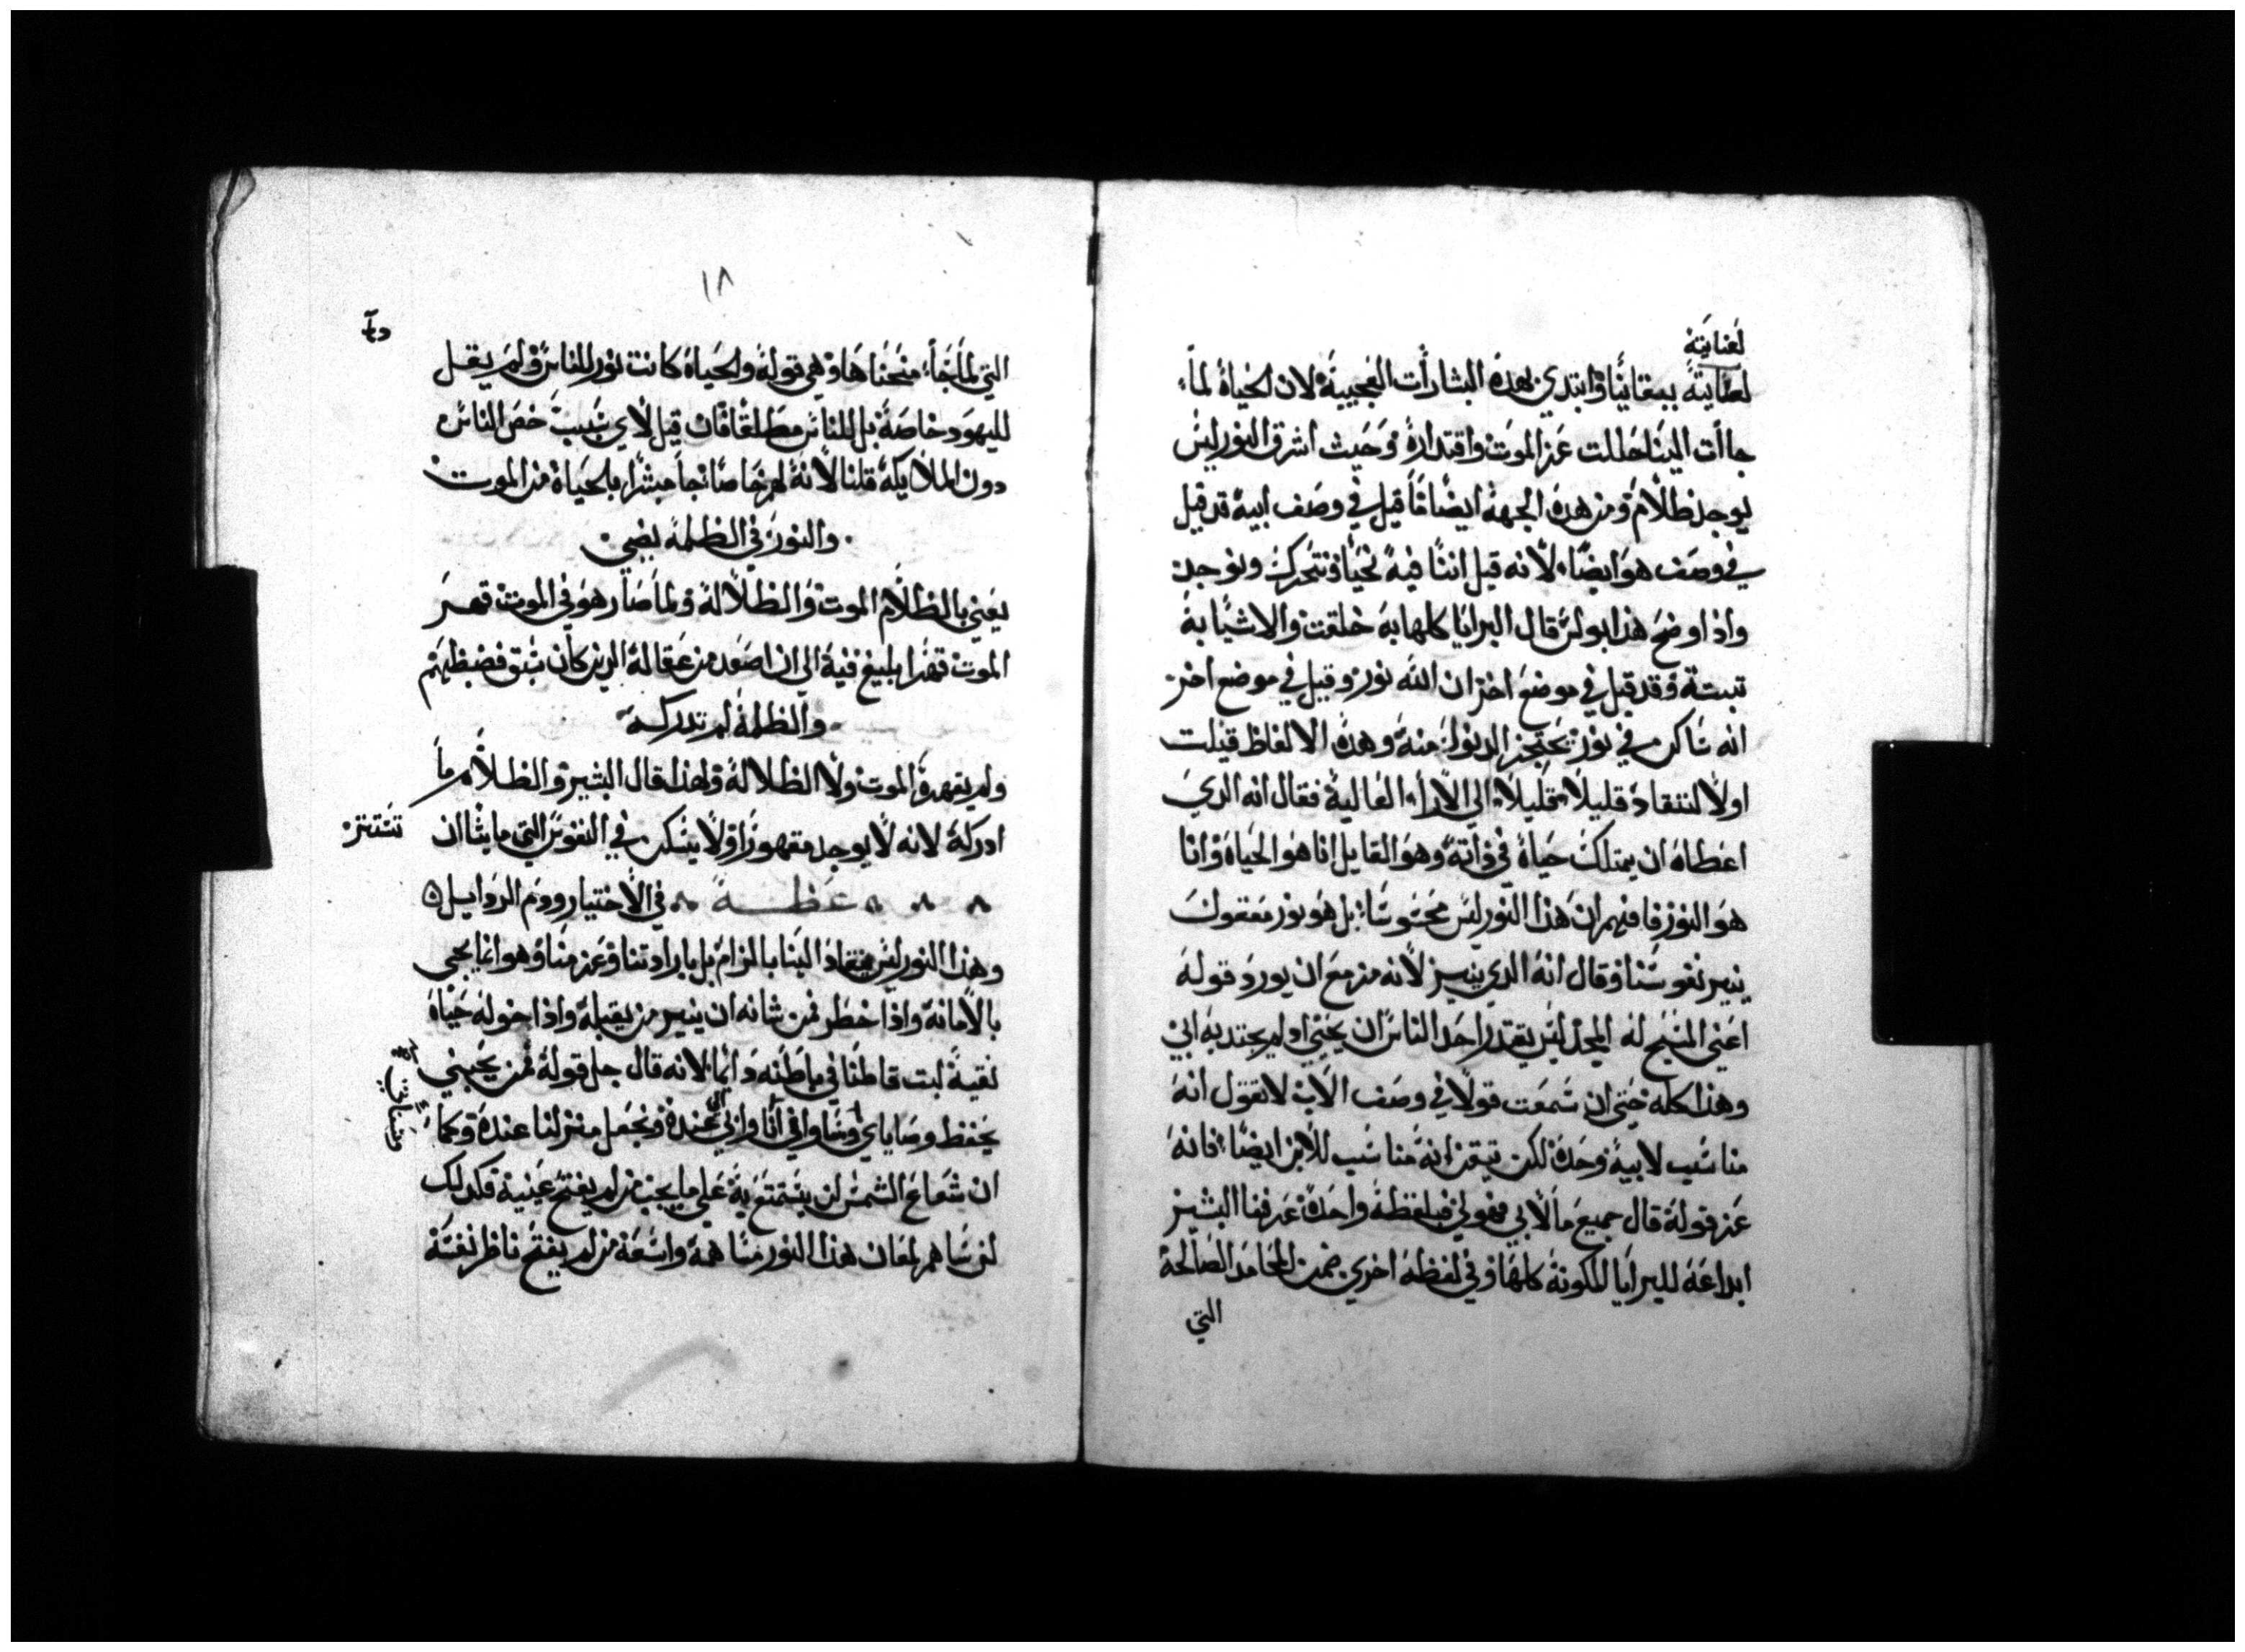 لعنايته
لعنايته ببقاينا وابتدي بهده البشارأت العجيبة لان الحياة لما
جاأت الينا حللت عز الموت واقتداره وحيث اشرق النور ليس
يوجد ظلام ومن هده الجهة ايضا ما قيل في وصف ابيه قد قيل
في وصف هو ايضا لانه قيل اننا فيه نحيا ونتحرك ونوجد
واذ اوضح هذا بولس قال البرايا كلها به خلقت والاشيا به
تبتت وقد قيل في موضع اخر ان الله نور وقيل في موضع اخر
انه ساكن في نور يحتجز الدنو منه وهده الالفاظ قيلت
اولا لنتقاد قليلا قليلا الي الارأ العالية فقال انه الدي
اعطاه ان يمتلك حياة في ذاته وهو القايل انا هو الحياة وانا
هو النور فافهم ان هذا النور ليس محسوسا بل هو نور معقول
ينير نفوسنا وقال انه الدي ينير لانه مزمع ان يورد قوله
اعني المسيح له المجد ليس يقتدر احد الناس ان يجيني او لم يجتدبه ابي
وهذا كله حتي ان سمعت قولا في وصف الاب لا تقول انه
مناسب لابيه وحده لكن تيقن انه مناسب للابن ايضا فانه
عز قوله قال جميع ما لابي فهو لي فبلفظة واحدة عرفنا البشير
ابداعه للبرايا المكونة كلها وفي لفظه اخري ضمن المحامد الصالحة
التي
١٨
التي لما جاأ منحنا ها وهي قوله والحياة كانت نور للناس ولم يقل
لليهود خاصة بل للناس مطلقا فان قيل لاي سبب خص الناس
دون الملايكة قلنا لانه لهم خاصا جا مبشرا بالحياة من الموت
والنور في الظلمة يضي
يعني بالظلام الموت والظلالة ولما صار هو في الموت قهر
الموت قهرا بليغ فيه الي ان اصعد من عقاله الدين كان سبق فضبطهم
والظلمة لم تدركه
ولم يقهره الموت ولا الظلالة ولهذا قال البشير والظلام ما
ادركه لانه لا يوجد مقهورا ولا يسكن في النفوس التي ما يشا ان
تستنر
عظة في الاختيار ودم الردايل
وهذا النور ليس ينقاد الينا بالزام بل بارادتنا وعزمنا وهو انما يجي
بالامانة واذا خطر فمن شانه ان ينير من يقبله واذا خوله حياة
نقية لبت قاطنا في باطنه دائما لانه قال جل قوله من يحبني
يحفظ وصاياي وساوافي انا وابي الي عنده ونجعل منزلنا عنده وكما
ان شعاع الشمس لن يستمتع به علي ما يجب من لم يفتح عينيه فكدلك
لن ساهم لمعان هذا النور مساهمة واسعة من لم يفتح ناظر نفسه